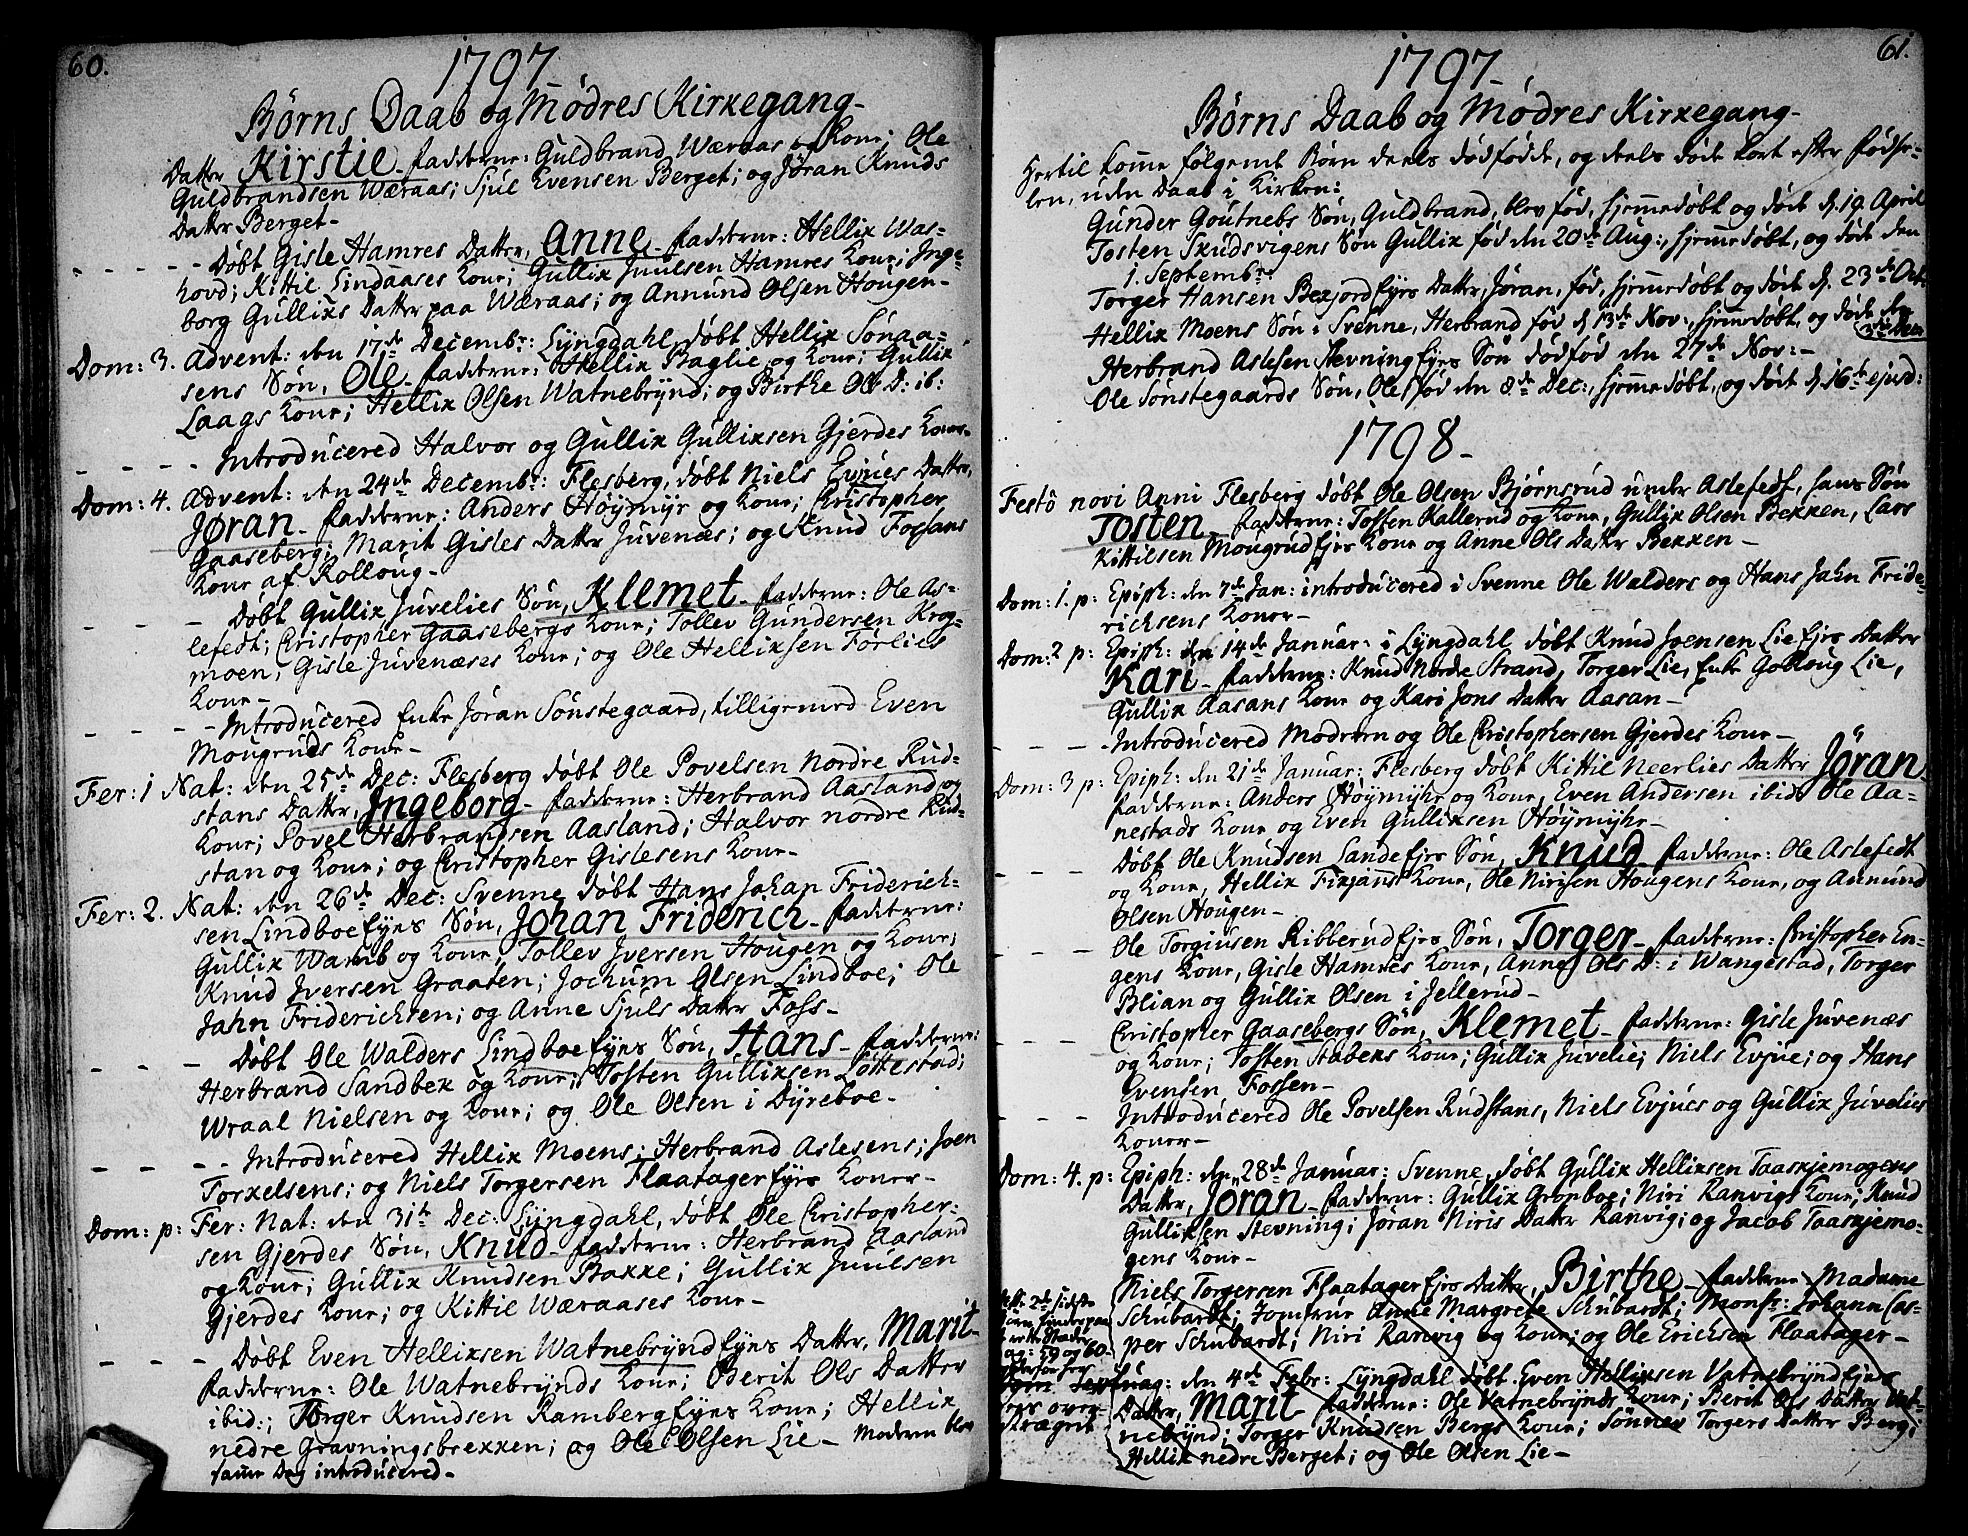 60.
1797.
Børns Daab og Mødres Kirkegang-
Datter Kirstie- fadderne: Guldbrand Wæraas og Kone; Ole
Guldbrandsen Wæraas; Sjul Evensen Berget; og Jøran Knuds
Datter Berget-
- - - - - Døbt Gisle Hamres Datter, Anne- fadderne: Hellik Was-
hovd; Kittil Lindaases Kone; Gullix Juulsen Hamres Kone; Inge-
borg Gullixs Datter paa Wæraas; og Annund Olsen Hougen-
Dom: 3. Advent: den 17de Decembr: Lyngdahl døbt Hellix Sønaa-
sens Søn, Ole- fadderne: Hellix Baglie og Kone; Gullix
Laags Kone; Hellix Olsen Watnebrynd; og Birthe Ols D: ib:
- - - - - Introducered Halvor og Gullix Gullixsen Gjerdes Koner-
Dom: 4. Advent: den 24de Decembr: Flesberg, døbt Niels Evjues Datter,
Jøran- fadderne: Anders Høymyr og Kone; Christopher
Gaaseberg; Marit Gisles Datter Juvenæs; og Knud Fossans
Kone af Rolloug-
- - - - Døbt Gullix Juvelies Søn, Klemet- fadderne: Ole As-
lefedt; Christopher Gaasebergs Kone; Tollev Gundersen Krog-
moen; Gisle Juvenæses Kone; og Ole Hellixsen Førlies
Kone-
- - - - - Introducered Enke Jøran Sønstegaard, tilligemed Even
Mougruds Kone-
Fer: 1 Nat: den 25de Dec: Flesberg døbt Ole Povelsen Nordre Rud-
stans Datter, Ingeborg- fadderne: Herbrand Aasland og
Kone; Povel Herbrandsen Aasland; Halvor nordre Rud-
stan og Kone; og Christopher Gislesens Kone-
Fer: 2. Nat: den 26de Dec: Svenne døbt Hans Johan Friderich-
sen Lindboe Ejers Søn, Johan Friderich- fadderne:
Gullix Wamb og Kone, Tollev Iversen Hougen og Kone;
Knud Iversen Graaten; Jochum Olsen Lindboe; Ole
Jahn Friderichsen; og Anne Sjuls Datter Foss-
- - - - Døbt Ole Walders Lindboe Ejers Søn, Hans- fadderne:
Herbrand Sandbek og Kone; Tosten Gullixsen Løtkestad;
Wraal Nielsen og Kone; og Ole Olsen i Dyreboe-
- - - - Introducered Hellix Moens; Herbrand Aslesens; Joen
Torkelsens; og Niels Torgersen Flaatager Ejers Koner-
Dom: p: Fer: Nat: den 31te Dec: Lyngdahl, døbt Ole Christopher-
sen Gjerdes Søn, Knud- fadderne: Herbrand Aasland
og Kone; Gullix Knudsen Bakke; Gullix Juulsen
Gjerdes Kone; og Kittil Wæraases Kone-
- - - - Døbt Even Hellixsen Watnebrynd Ejers Datter, Marit-
fadderne: Ole Watnebrynds Kone; Berit Ols Datter
ibid:; Torger Knudsen Ramberg Ejers Kone; Hellix
nedre Gravningsbrekken; og Ole Olsen Lie- Moderen blev
samme Dag introducered-
61.
1797-
Børns Daab og Mødres Kirkegang-
Hertil komme følgende Børn deels dødfødde, og deels døde kort efter fødse-
len, uden Daab i Kirken:
Gunder Goutnebs Søn, Guldbrand, blev fød, hjemmedøbt og døde d. 19 April
Tosten Skudsvigens Søn Gullix fød den 20de Aug:, hjemmedøbt, og døde den
1. Septembr:
Torger Hansen Bekjord Ejers Datter, Jøran, fød, hjemmedøbt og døde d. 23de Oct:
Hellix Moens Søn i Svenne, Herbrand fød d. 13de Nov:, hjemmedøbt, og døde den
3die Decbr
Herbrand Aslesen Stevning Ejers Søn dødfød den 27de Nov:-
Ole Sønstegaards Søn, Ole, fød den 8de Dec:, hjemmedøbt, og døde d. 16de ejusd:
1798-
Festô novi Anni Flesberg døbt Ole Olsen Bjørnsrud under Aslefedt, hans Søn
Tosten- fadderne: Tosten Kallerud og Kone, Gullix Olsen Bekken, Lars
Kittilsen Mougrud Ejers Kone og Anne Ols Datter Bekken-
Dom: 1. p: Epiph: den 7de Jan: introducered i Svenne Ole Walders og Hans Jahn Fride-
richsens Koner-
Dom: 2 p: Epiph: den 14de Januar: i Lyngdahl døbt Knud Joensen Lie Ejers Datter
Kari- fadderne: Knud Nordre Strand, Torger Lie, Enke Golloug Lie,
Gullix Aasans Kone og Kari Jons Datter Aasan-
- - - - Introducered Moderen og Ole Christophersen Gjerdes Kone-
Dom: 3 p: Epiph: den 21de Januar: Flesberg døbt Kittil Neerlies Datter Jøran-
fadderne: Anders Høymyhr og Kone, Even Andersen ibid: Ole Aa-
nestads Kone og Even Gullixsen Høymyhr-
- - - Døbt Ole Knudsen Lande Ejers Søn, Knud- fadderne: Ole Aslefedt
og Kone, Hellix Fikjans Kone, Ole Nirisen Hougens Kone, og Annund
Olsen Hougen-
- - - Ole Torgiusen Ribberud Ejers Søn, Torger- fadderne: Christopher En-
gens Kone, Gisle Hamres Kone, Anne Ols D: i Wangestad, Torger
Blian og Gullix Olsen i Jellerud-
- - - Christopher Gaasebergs Søn, Klemet- fadderne: Gisle Juvenæs
og Kone; Tosten Stubens Kone; Gullix Juvelie; Niels Evjue; og Hans
Evensen Fossen-
- - - Introducered Ole Povelsen Rudstans, Niels Evjues og Gullix Juvelies
Koner-
Dom: 4. p: Epiph: den 28de Januar: Svenne, døbt Gullix Hellixsen Taaskjemogens
Datter, Jøran- fadderne: Gullix Gronboe; Niri Ranvigs Kone; Knud
Gullixsen Stevning; Jøran Niris Datter Ranvig; og Jacob Taaskjemo-
gens Kone-
Niels Torgersen Flaatager Ejers Datter, Birthe- fadderne Madame
Schubardt; Jomfrue Anne Margrete Schubardt; Monsr: Johann Cas-
per Schubardt; Niri Ranvig og Kone; og Ole Ericksen Flaatager-
Disse 2de sidste
Børn findes paa
rette Stæder
pag: 59 og 60-
og derfor her
over-
strøget
Dom: Sexag: den 4de Febr: Lyngdahl døbt Even Hellixsen Vatnebrynd Ejers
Datter, Marit fadderne: Ole Vatnebrynds Kone; Berit Ols Datter Vat-
nebrynd; Torger Knudsen Bergs Kone; Sønnev Torgers Datter Berg;
Hellix nedre Berget; og Ole Olsen Lie-